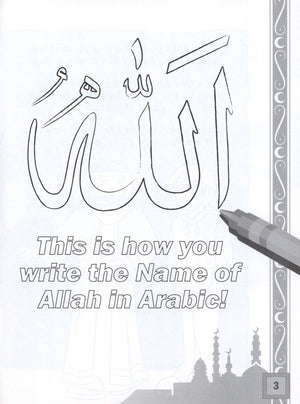 اَللّٰهُ
This is how you
write the Name of
Allah in Arabic!
3